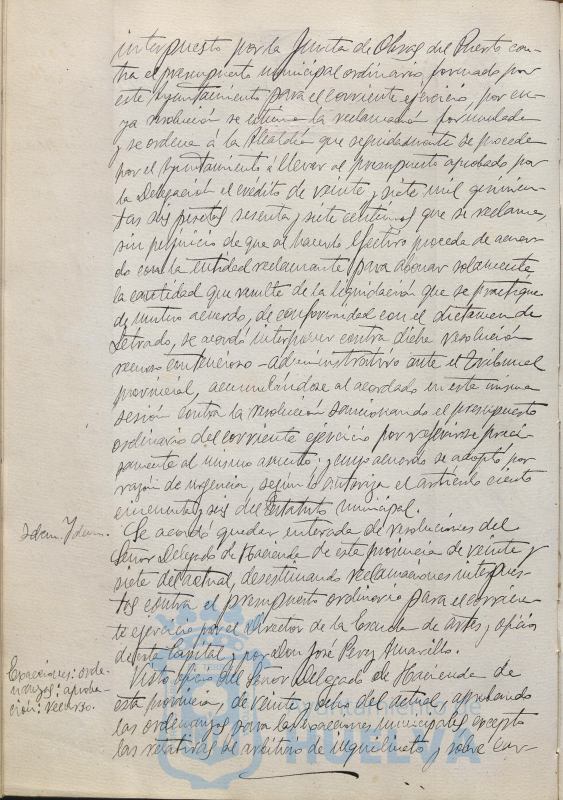 interpuesto por la Junta de Obras del Puerto con-
tra el presupuesto municipal ordinario formado por
este Ayuntamiento para el corriente ejercicio, por cu-
ya resolución se estima la reclamación formulada
y se ordena á la Alcaldía que seguidamente se proceda
por el Ayuntamiento á llevar al presupuesto aprobado por
la Delegación el crédito de veinte y siete mil quinien-
tas seis pesetas sesenta y siete centimos que se reclama,
sin perjuicio de que al hacerlo efectivo proceda de acuer-
do con la entidad reclamante para abonar solamente
la cantidad que resulte de la liquidación que se practique
de mutuo acuerdo, de conformidad con el dictamen de
Letrado, se acordó interponer contra dicha resolución
recurso contencioso-administrativo ante el Tribunal
provincial, acumulándose al acordado en esta misma
sesión contra la resolución sancionando el presupuesto
ordinario del corriente ejercicio por referirse preci-
samente al mismo asunto; cuyo acuerdo se adoptó por
razón de urgencia, según lo autoriza el artículo ciento
cincuenta y seis del Estatuto municipal.
Idem. Idem.
Se acordó quedar enterada de resoluciones del
Señor Delegado de Hacienda de esta provincia de veinte y
siete del actual, desestimando reclamaciones interpues-
tas contra el presupuesto ordinario para el corrien-
te ejercicio por el Director de la Escuela de Artes y oficios
de esta Capital y por Don José Perez Jaramillo.
Exacciones: orde-
nanzas: aproba-
ción: recurso.
Visto oficio del Señor Delegado de Hacienda de
esta provincia, de veinte y ocho del actual, aprobando
las ordenanzas para las exacciones municipales excepto
las relativas al arbitrio de inquilinato y sobre car-
Ayuntamiento de
HUELVA